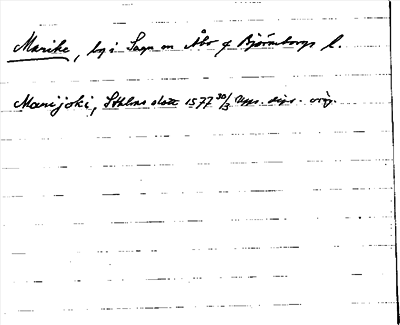 Marike, by i Sagu sn Åbo & Björneborgs l.
Marijoki, Sthlms slott 1577 30/3 Upps. dips. orig.